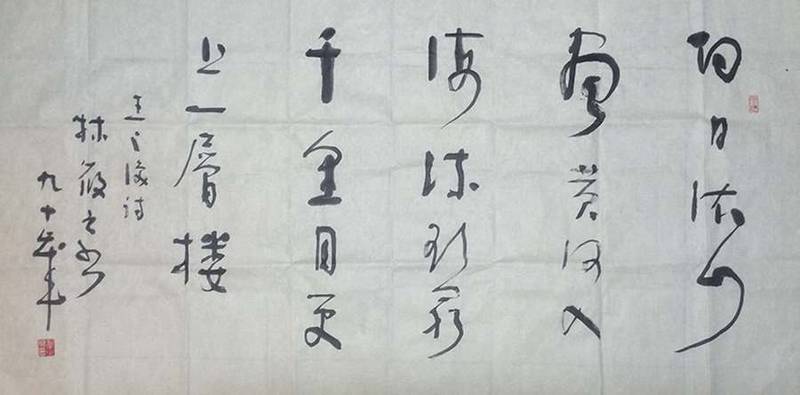 白日依山
尽黄河入
海流欲穷
千里目更
上一層楼
王之涣诗
林筱之书
九十